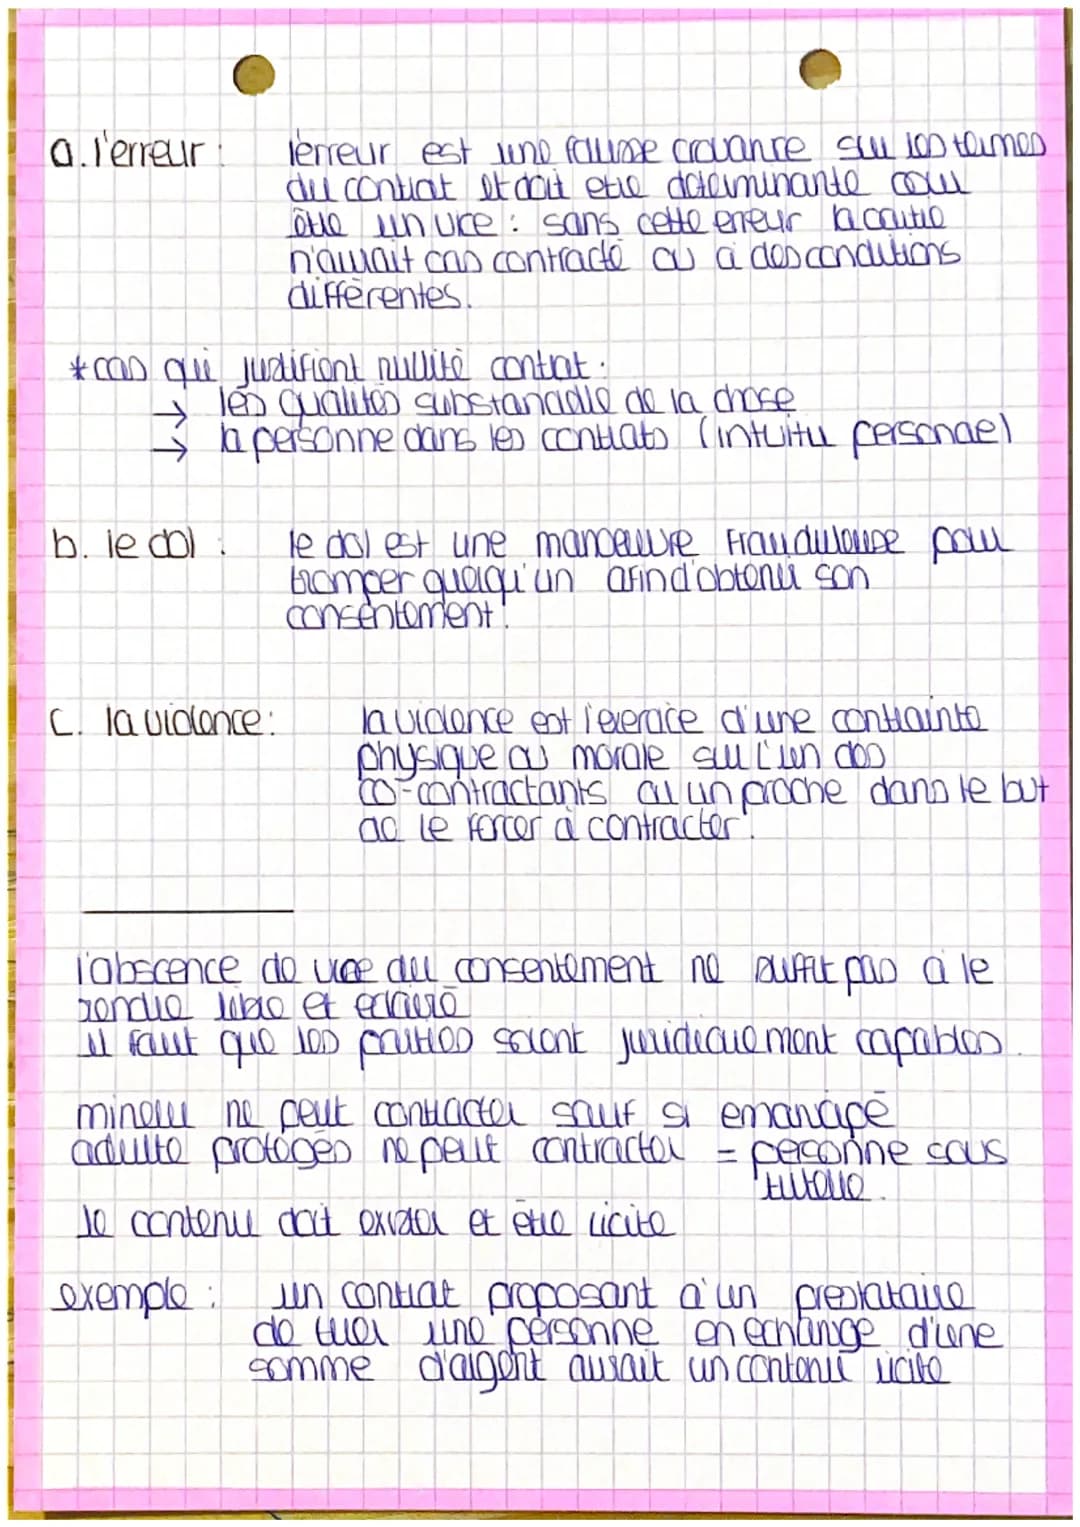 a. l'erreur : l'erreur est une fausse croyance sur les termes
du contrat et doit etre determinante pour
être un vice : sans cette erreur la partie
n'aurait pas contracté ou à des conditions
différentes.
* cas qui justifient nullité contrat :
→ les qualités substancielle de la chose
→ la personne dans les contrats (intuitu personae)
b. le dol : le dol est une manoeuvre frauduleuse pour
tromper quelqu'un afin d'obtenir son
consentement.
c. la violence : la violence est l'exercice d'une contrainte
physique ou morale sur l'un des
co-contractants ou un proche dans le but
de le forcer à contracter.
l'abscence de vice du consentement ne suffit pas à le
rendre libre et eclairé
il faut que les parties soient juridiquement capables.
mineur ne peut contracter sauf si emancipé
adulte protégés ne peut contracter = personne sous
tutelle.
le contenu doit exister et être licite
exemple : un contrat proposant à un prestataire
de tuer une personne en echange d'une
somme d'argent aurait un contenu licite